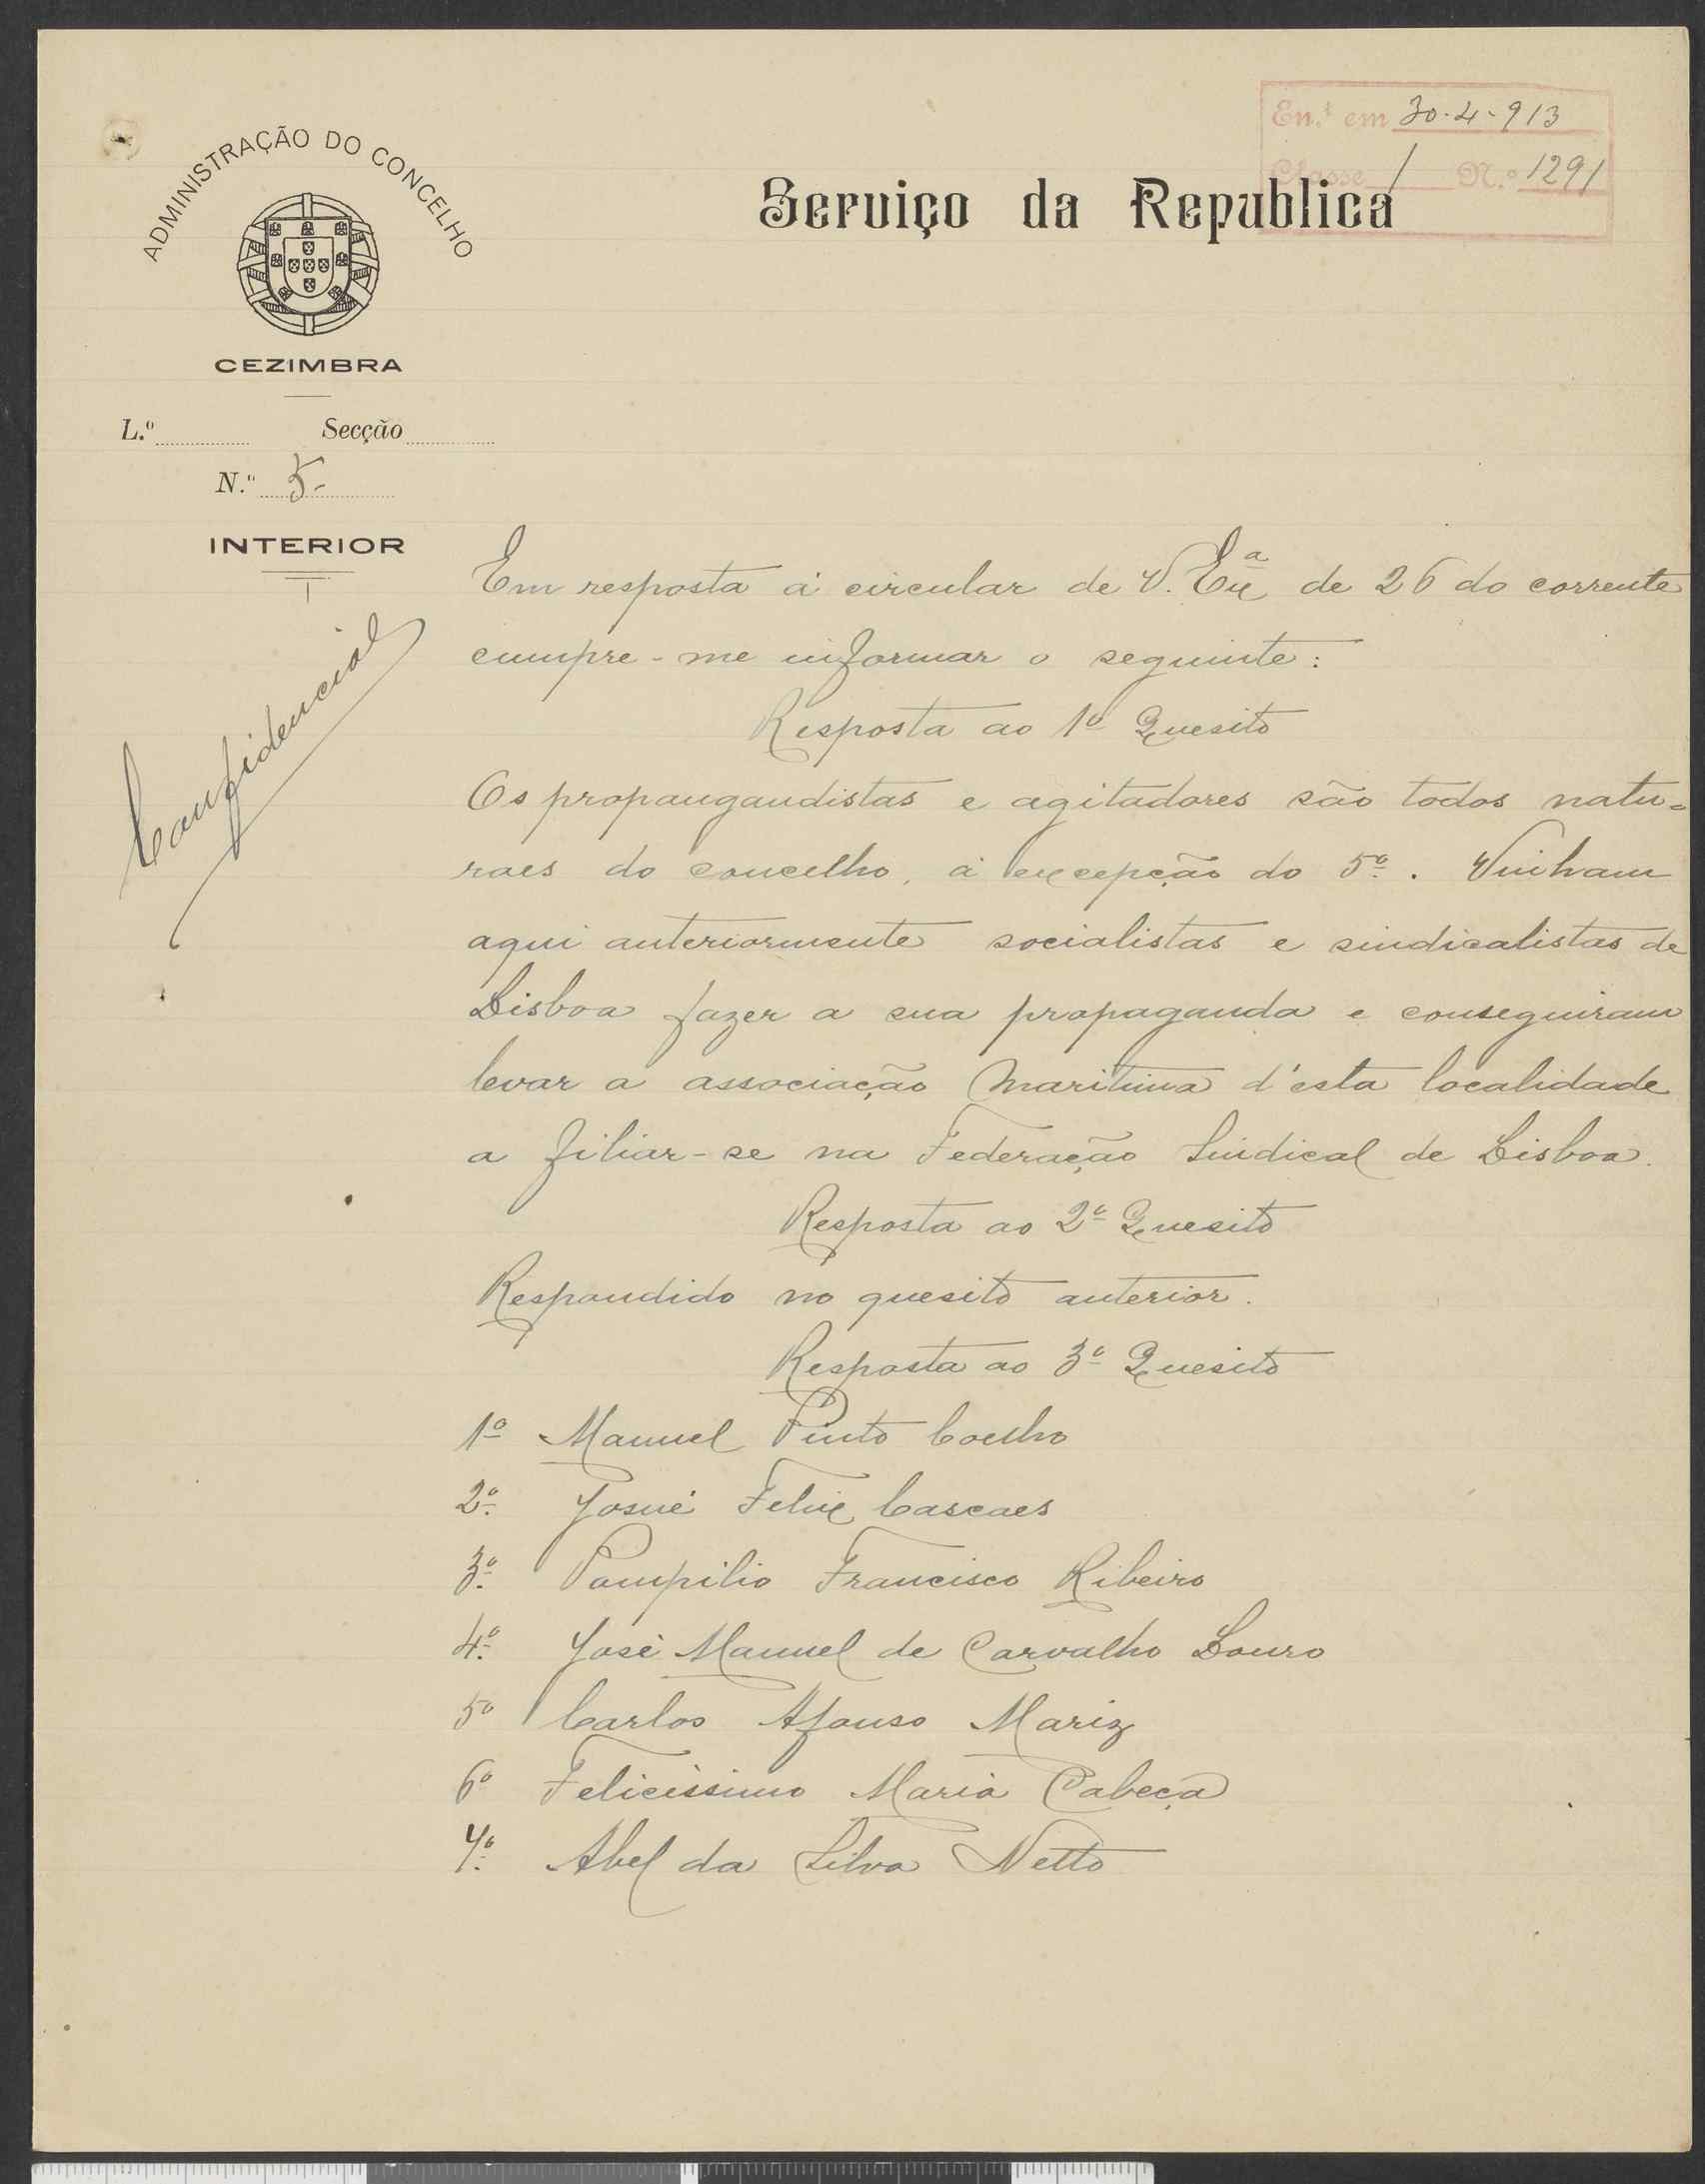 En.ª em 30-4-913
Classe 1 N.º 1291
ADMINISTRAÇÃO DO CONCELHO
Serviço da Republica
CEZIMBRA
L.º Secção
N.º 5-
INTERIOR
Confidencial
Em resposta á circular de V. Exª de 26 do corrente
cumpre-me informar o seguinte:
Resposta ao 1º Quesito
Os propangandistas e agitadores são todos natu=
raes do concelho, á excepção do 5º. Vinham
aqui anteriormente socialistas e sindicalistas de
Lisboa fazer a sua propaganda e conseguiram
levar a associação Maritima d'esta localidade
a filiar-se na Federação Sindical de Lisboa.
Resposta ao 2º Quesito
Respondido no quesito anterior.
Resposta ao 3º Quesito
1º Manuel Pinto Coelho
2º Josué Felix Cascaes
3º Pompilio Francisco Ribeiro
4º José Manuel de Carvalho Louro
5º Carlos Afonso Mariz
6º Felicissimo Maria Cabeça
7º Abel da Silva Netto